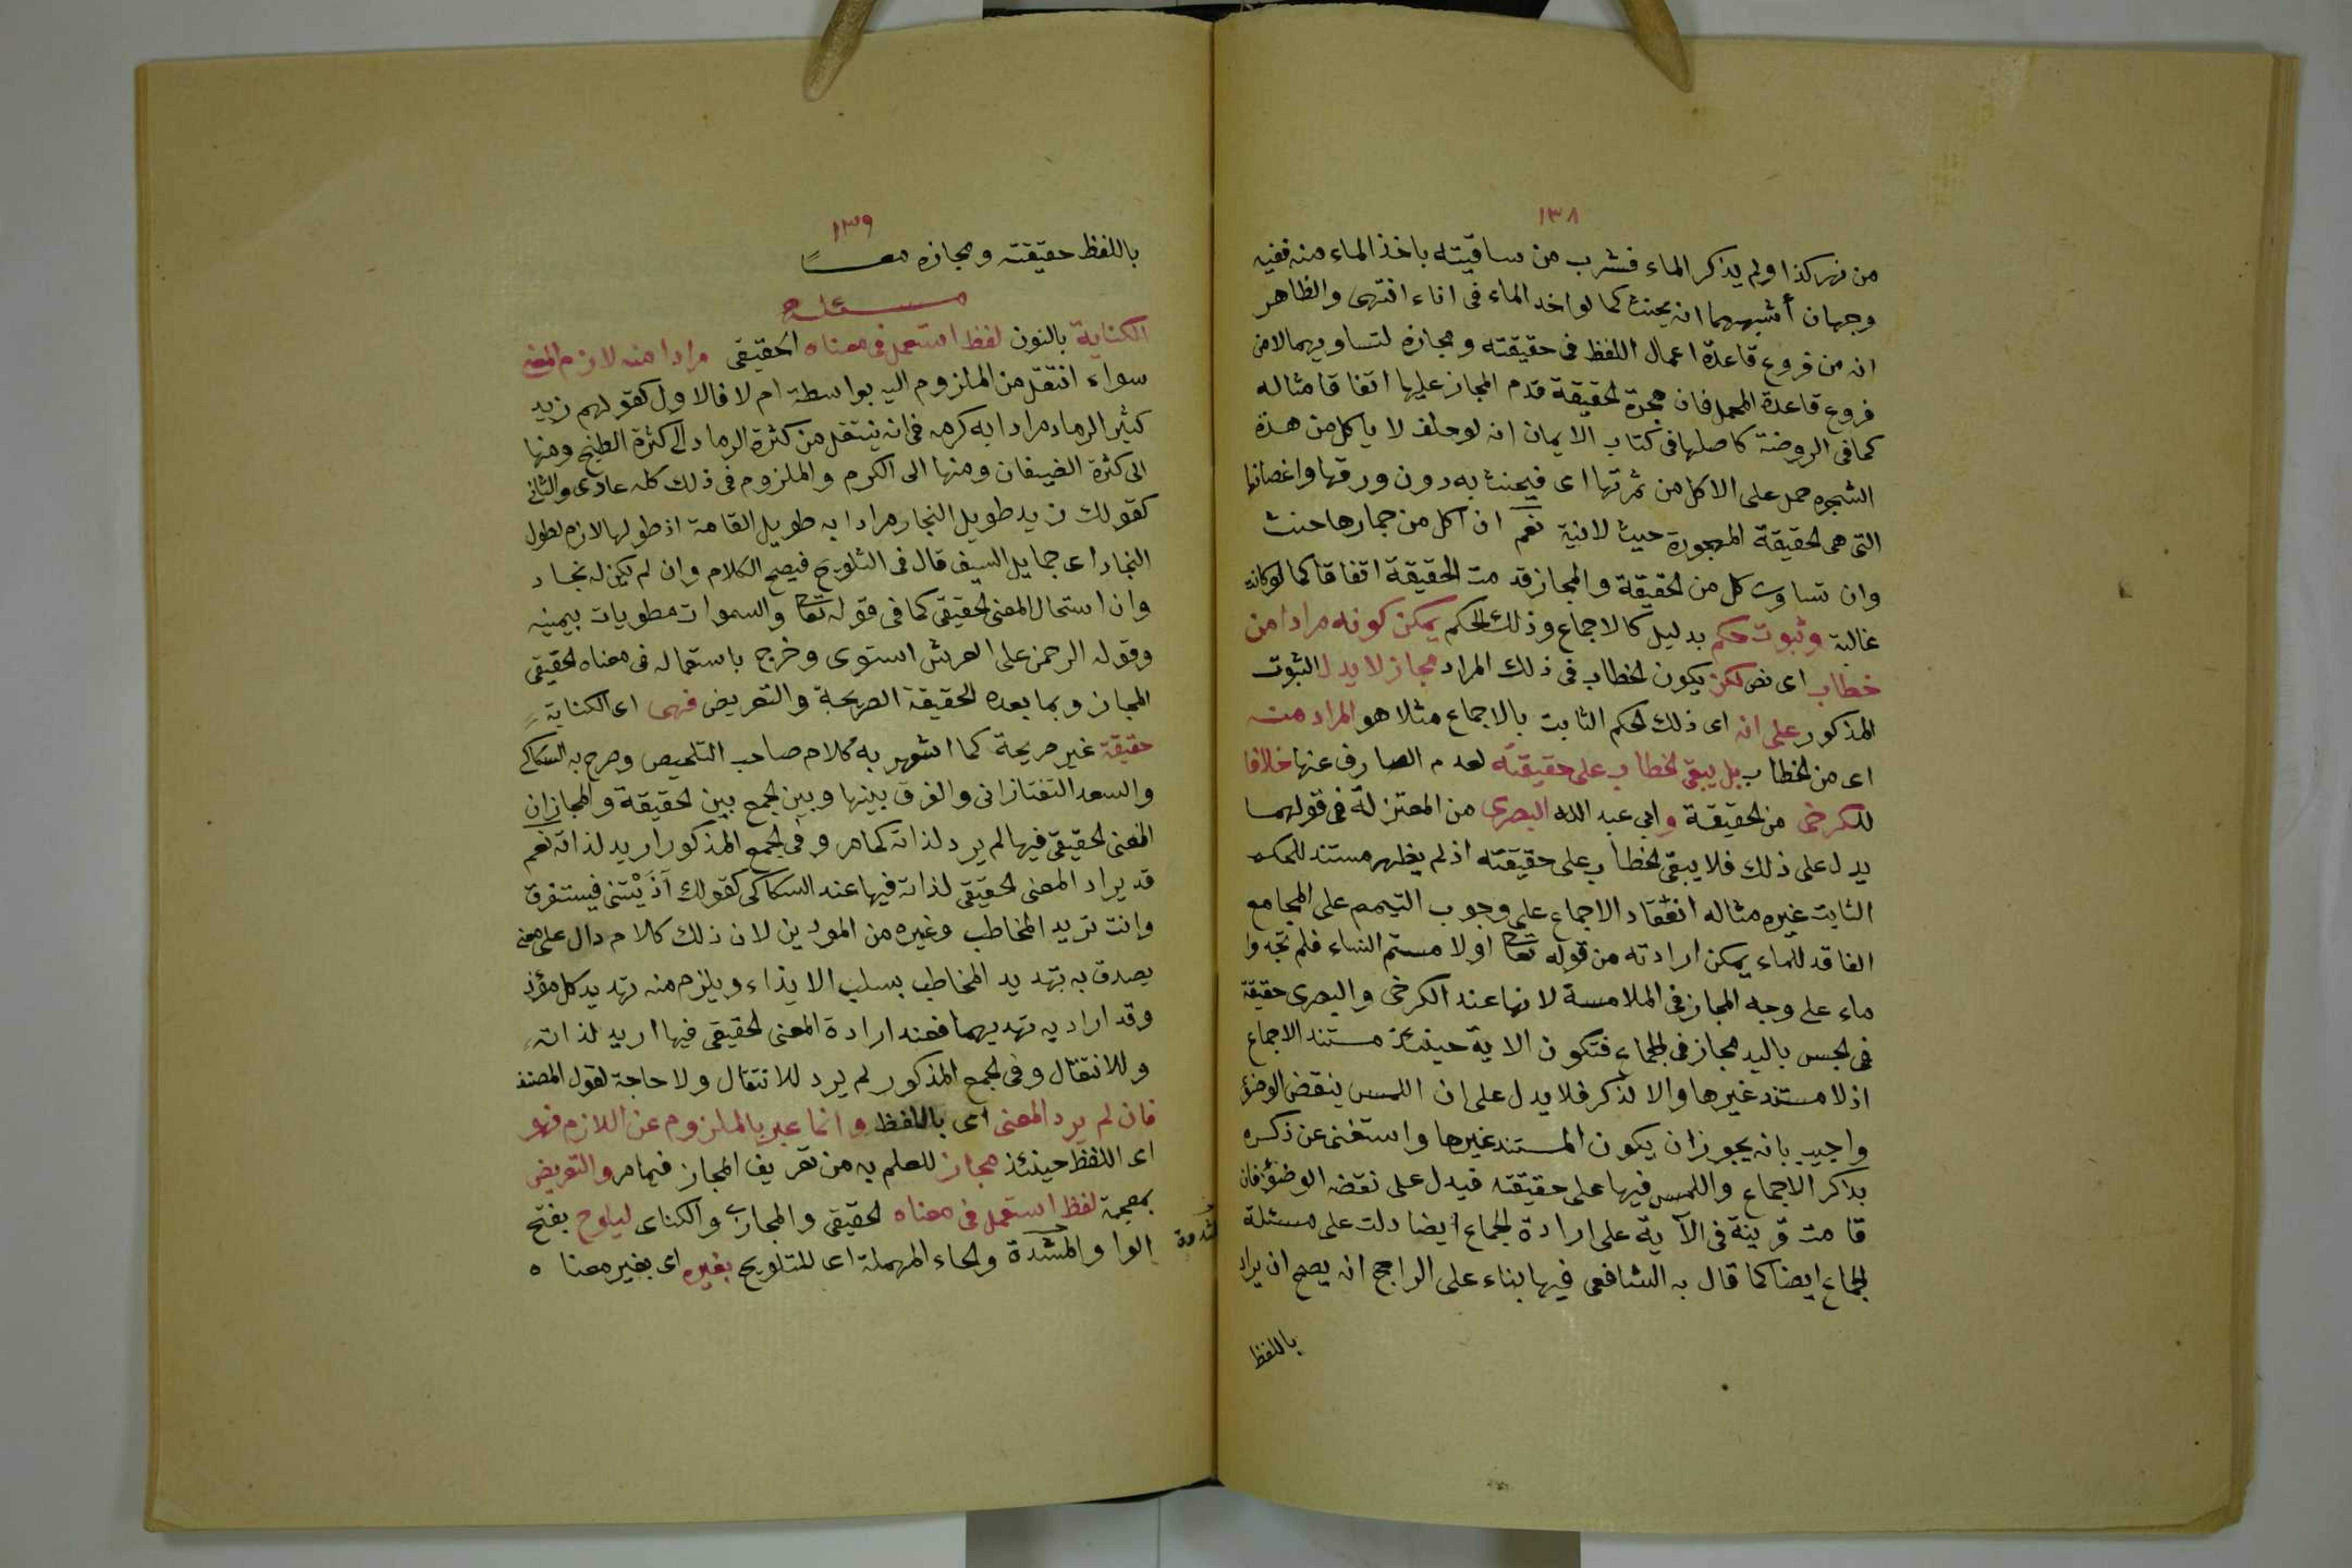 ١٣٨
من نهر كذا ولم يذكر الماء فشرب من ساقيته باخذ الماء منه ففيه
وجهان أشبههما انه يحنث كما لو اخد الماء فى اناء انتهى والظاهر
انه من فروع قاعدة اعمال اللفظ فى حقيقته ومجازه لتساويهما لا من
فروع قاعدة المحمل فان هجرة الحقيقة قدم المجاز عليها اتفاقا مثاله
كما فى الروضة كاصلها فى كتاب الايمان انه لو حلف لا ياكل من هذه
الشجره حمل على الاكل من ثمرتها اى فيحنث به دون ورقها واغصانها
التى هى الحقيقة المهجورة حيث لا نية نعم ان اكل من جمارها حنث
وان تساوت كل من الحقيقة والمجاز قدمت الحقيقة اتفاقا كما لو كانت
غالبة وثبوت حكم بدليل كالاجماع وذلك الحكم يمكن كونه مرادا من
خطاب اى نص لكن يكون الخطاب فى ذلك المراد مجاز لا يدل الثبوت
المذكور على انه اى ذلك الحكم الثابت بالاجماع مثلا هو المراد منه
اى من الخطاب بل يبقى الخطاب على حقيقته لعدم الصارف عنها خلافا
للكرخى من الحقيقة وابى عبد الله البصرى من المعتزلة فى قولهما
يدل على ذلك فلا يبقى الخطاب على حقيقته اذ لم يظهر مستند للحكم
الثابت غيره مثاله انعقاد الاجماع على وجوب التيمم على المجامع
الفاقد للماء يمكن ارادته من قوله تعا او لا مستم النساء فلم تجدوا
ماء على وجه المجاز فى الملامسة لانها عند الكرخى والبصرى حقيقة
فى الجس باليد مجاز فى الجماع فتكون الاية حينئذ مستند الاجماع
اذ لا مستند غيرها والا لذكر فلا يدل على ان اللمس ينقض الوضؤ
واجيب بانه يجوز ان يكون المستند غيرها واستغنى عن ذكره
بذكر الاجماع واللمس فيها على حقيقته فيدل على نقضه الوضؤ فان
قامت قرينة فى الآية على ارادة الجماع ايضا دلت على مسئلة
الجماع ايضا كما قال به الشافعى فيها بناء على الراجح انه يصح ان يراد
باللفظ
١٣٩
باللفظ حقيقته ومجازه معــًا
مسئلة
الكناية بالنون لفظ استعمل فى معناه الحقيقى مرادا منه لازم المعنى
سواء انتقل من الملزوم اليه بواسطة ام لا فالاول كقولهم زيد
كثير الرماد مرادا به كرمه فانه ينتقل من كثرة الرماد الى كثرة الطبخ ومنها
الى كثرة الضيفان ومنها الى الكرم والملزوم فى ذلك كله عادى والثانى
كقولك زيد طويل النجار مرادا به طويل القامة اذ طولها لازم لطول
النجاد اى حمايل السيف قال فى التلويح فيصح الكلام وان لم يكن له نجاد
وان استحال المعنى الحقيقى كما فى قوله تعا والسموات مطويات بيمينه
وقوله الرحمن على العرش استوى وخرج باستعماله فى معناه الحقيقى
المجاز وبما بعده الحقيقة الصريحة والتعريض فهى اى الكناية
حقيقة غير صريحة كما اشهر به كلام صاحب التلخيص وصرح به السكاكى
والسعد التفتازانى والفرق بينها وبين الجمع بين الحقيقة والمجاز ان
المعنى الحقيقى فيها لم يرد لذاته كما مر وفى الجمع المذكور اريد لذاته نعم
قد يراد المعنى الحقيقى لذاته فيها عند السكاكى كقولك آذَيْتنى فيستغرق
وانت تريد المخاطب وغيره من الموذين لان ذلك كلام دال على معنى
يصدق به تهديد المخاطب بسلب الايذاء ويلزم منه تهديد كل مؤذ
وقد اراد به تهديهما فعند ارادة المعنى الحقيقى فيها اريد لذاته
وللانتقال وفى الجمع المذكور لم يرد للانتقال ولا حاجة لقول المصنف
فان لم يرد المعنى اى باللفظ وانما عبر بالملزوم عن اللازم فهو
اى اللفظ حينئذ مجاز للعلم به من تعريف المجاز فيما مر والتعريض
بمعجمة لفظ استعمل فى معناه الحقيقى والمجازى والكناى ليلوح بفتح
الواو المشدة والحاء المهملة اى للتلويح بغيره اى بغير معناه